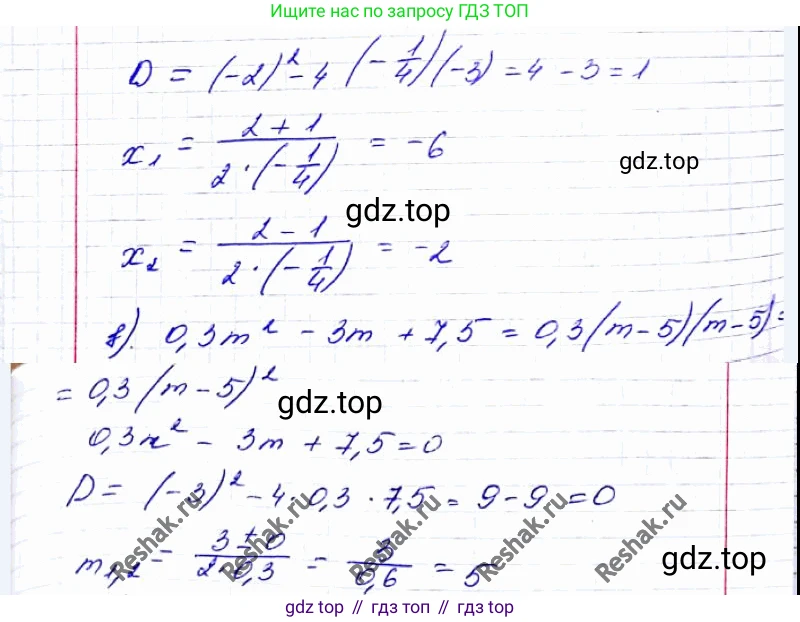 Ищите нас по запросу ГДЗ ТОП
D = (-2)² - 4 (-1/4)(-3) = 4 - 3 = 1
x₁ = (2 + 1)/(2·(-1/4)) = -6
gdz.top
gdz.top
x₂ = (2 - 1)/(2·(-1/4)) = -2
в). 0,3m² - 3m + 7,5 = 0,3(m-5)(m-5) =
= 0,3(m-5)²
gdz.top
0,3x² - 3m + 7,5 = 0
D = (-3)² - 4·0,3·7,5 = 9 - 9 = 0
m₁,₂ = (3 ± 0)/(2·0,3) = 3/0,6 = 5
Reshak.ru
Reshak.ru
Reshak.ru
Reshak.ru
gdz.top
gdz.top // гдз.топ // gdz.top